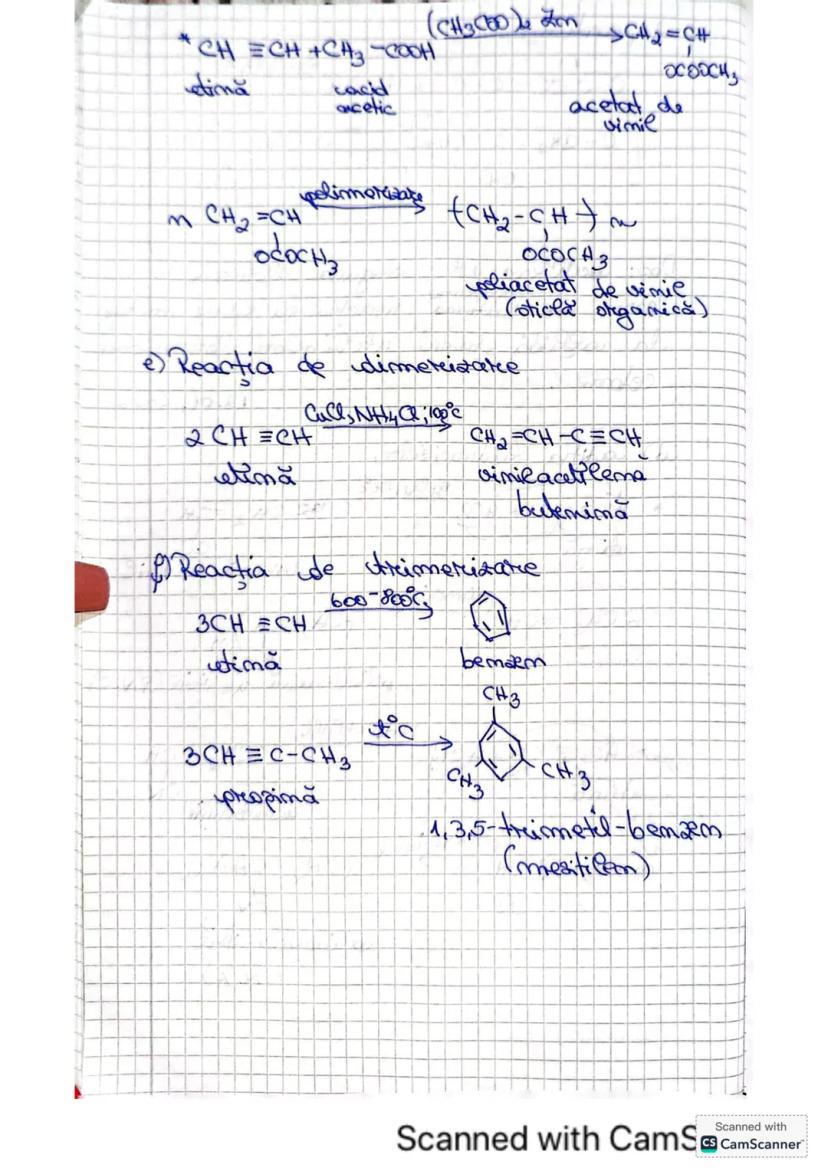 (CH3COO)2 Zn
* CH ≡ CH + CH3 – COOH → CH2 = CH
OCOCH3
etină acid acetic acetat de vinil
n CH2 = CH polimerizare → (CH2 – CH)n
OCOCH3 OCOCH3
poliacetat de vinil
(sticlă organică)
e) Reacția de dimerizare
2 CH ≡ CH CuCl, NH4Cl; 100°C → CH2 = CH – C ≡ CH
etină vinilacetilenă
butenină
f) Reacția de trimerizare
3CH ≡ CH 600-800°C →
etină benzen
CH3
3CH ≡ C – CH3 t°C → CH3 CH3
propină
1,3,5-trimetil-benzen
(mezitilen)
Scanned with CamS
Scanned with
CS CamScanner